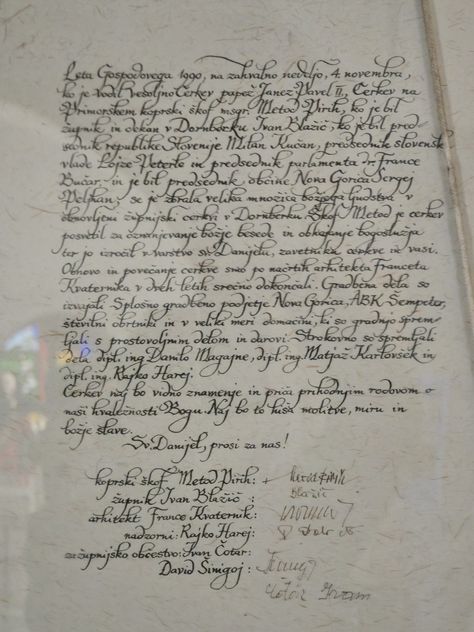 Leta Gospodovega 1990, na zahvalno nedeljo, 4. novembra,
ko je vodil vesoljno Cerkev papež Janez Pavel II., Cerkev na
Primorskem koprski škof msgr. Metod Pirih, ko je bil
župnik in dekan v Dornberku Ivan Blažič, ko je bil pred-
sednik republike Slovenije Milan Kučan, predsednik slovenske
vlade Lojze Peterle in predsednik parlamenta dr. France
Bučar, in je bil predsednik občine Nova Gorica Sergej
Pelhan, se je zbrala velika množica božjega ljudstva v
obnovljeni župnijski cerkvi v Dornberku. Škof Metod je cerkev
posvetil za oznanjevanje božje besede in obhajanje bogoslužja
ter jo izročil v varstvo sv. Danijelu, zavetniku cerkve in vasi.
Obnovo in povečanje cerkve smo po načrtih arhitekta Franceta
Kvaternika v dveh letih srečno dokončali. Gradbena dela so
izvajali Splošno gradbeno podjetje Nova Gorica, ABK Šempeter,
številni obrtniki in v veliki meri domačini, ki so gradnjo sprem-
ljali s prostovoljnim delom in darovi. Strokovno so spremljali
dela dipl. ing. Danilo Magajne, dipl. ing. Matjaž Karlovšek in
dipl. ing. Rajko Harej.
Cerkev naj bo vidno znamenje in priča prihodnjim rodovom o
naši hvaležnosti Bogu. Naj bo to hiša molitve, miru in
božje slave.
Sv. Danijel, prosi za nas!
koprski škof Metod Pirih: + Metod Pirih
župnik Ivan Blažič : Blažič
arhitekt France Kvaternik:
nadzorni: Rajko Harej:
za župnijsko občestvo: Ivan Čotar:
David Šinigoj :
Čotar Ivan